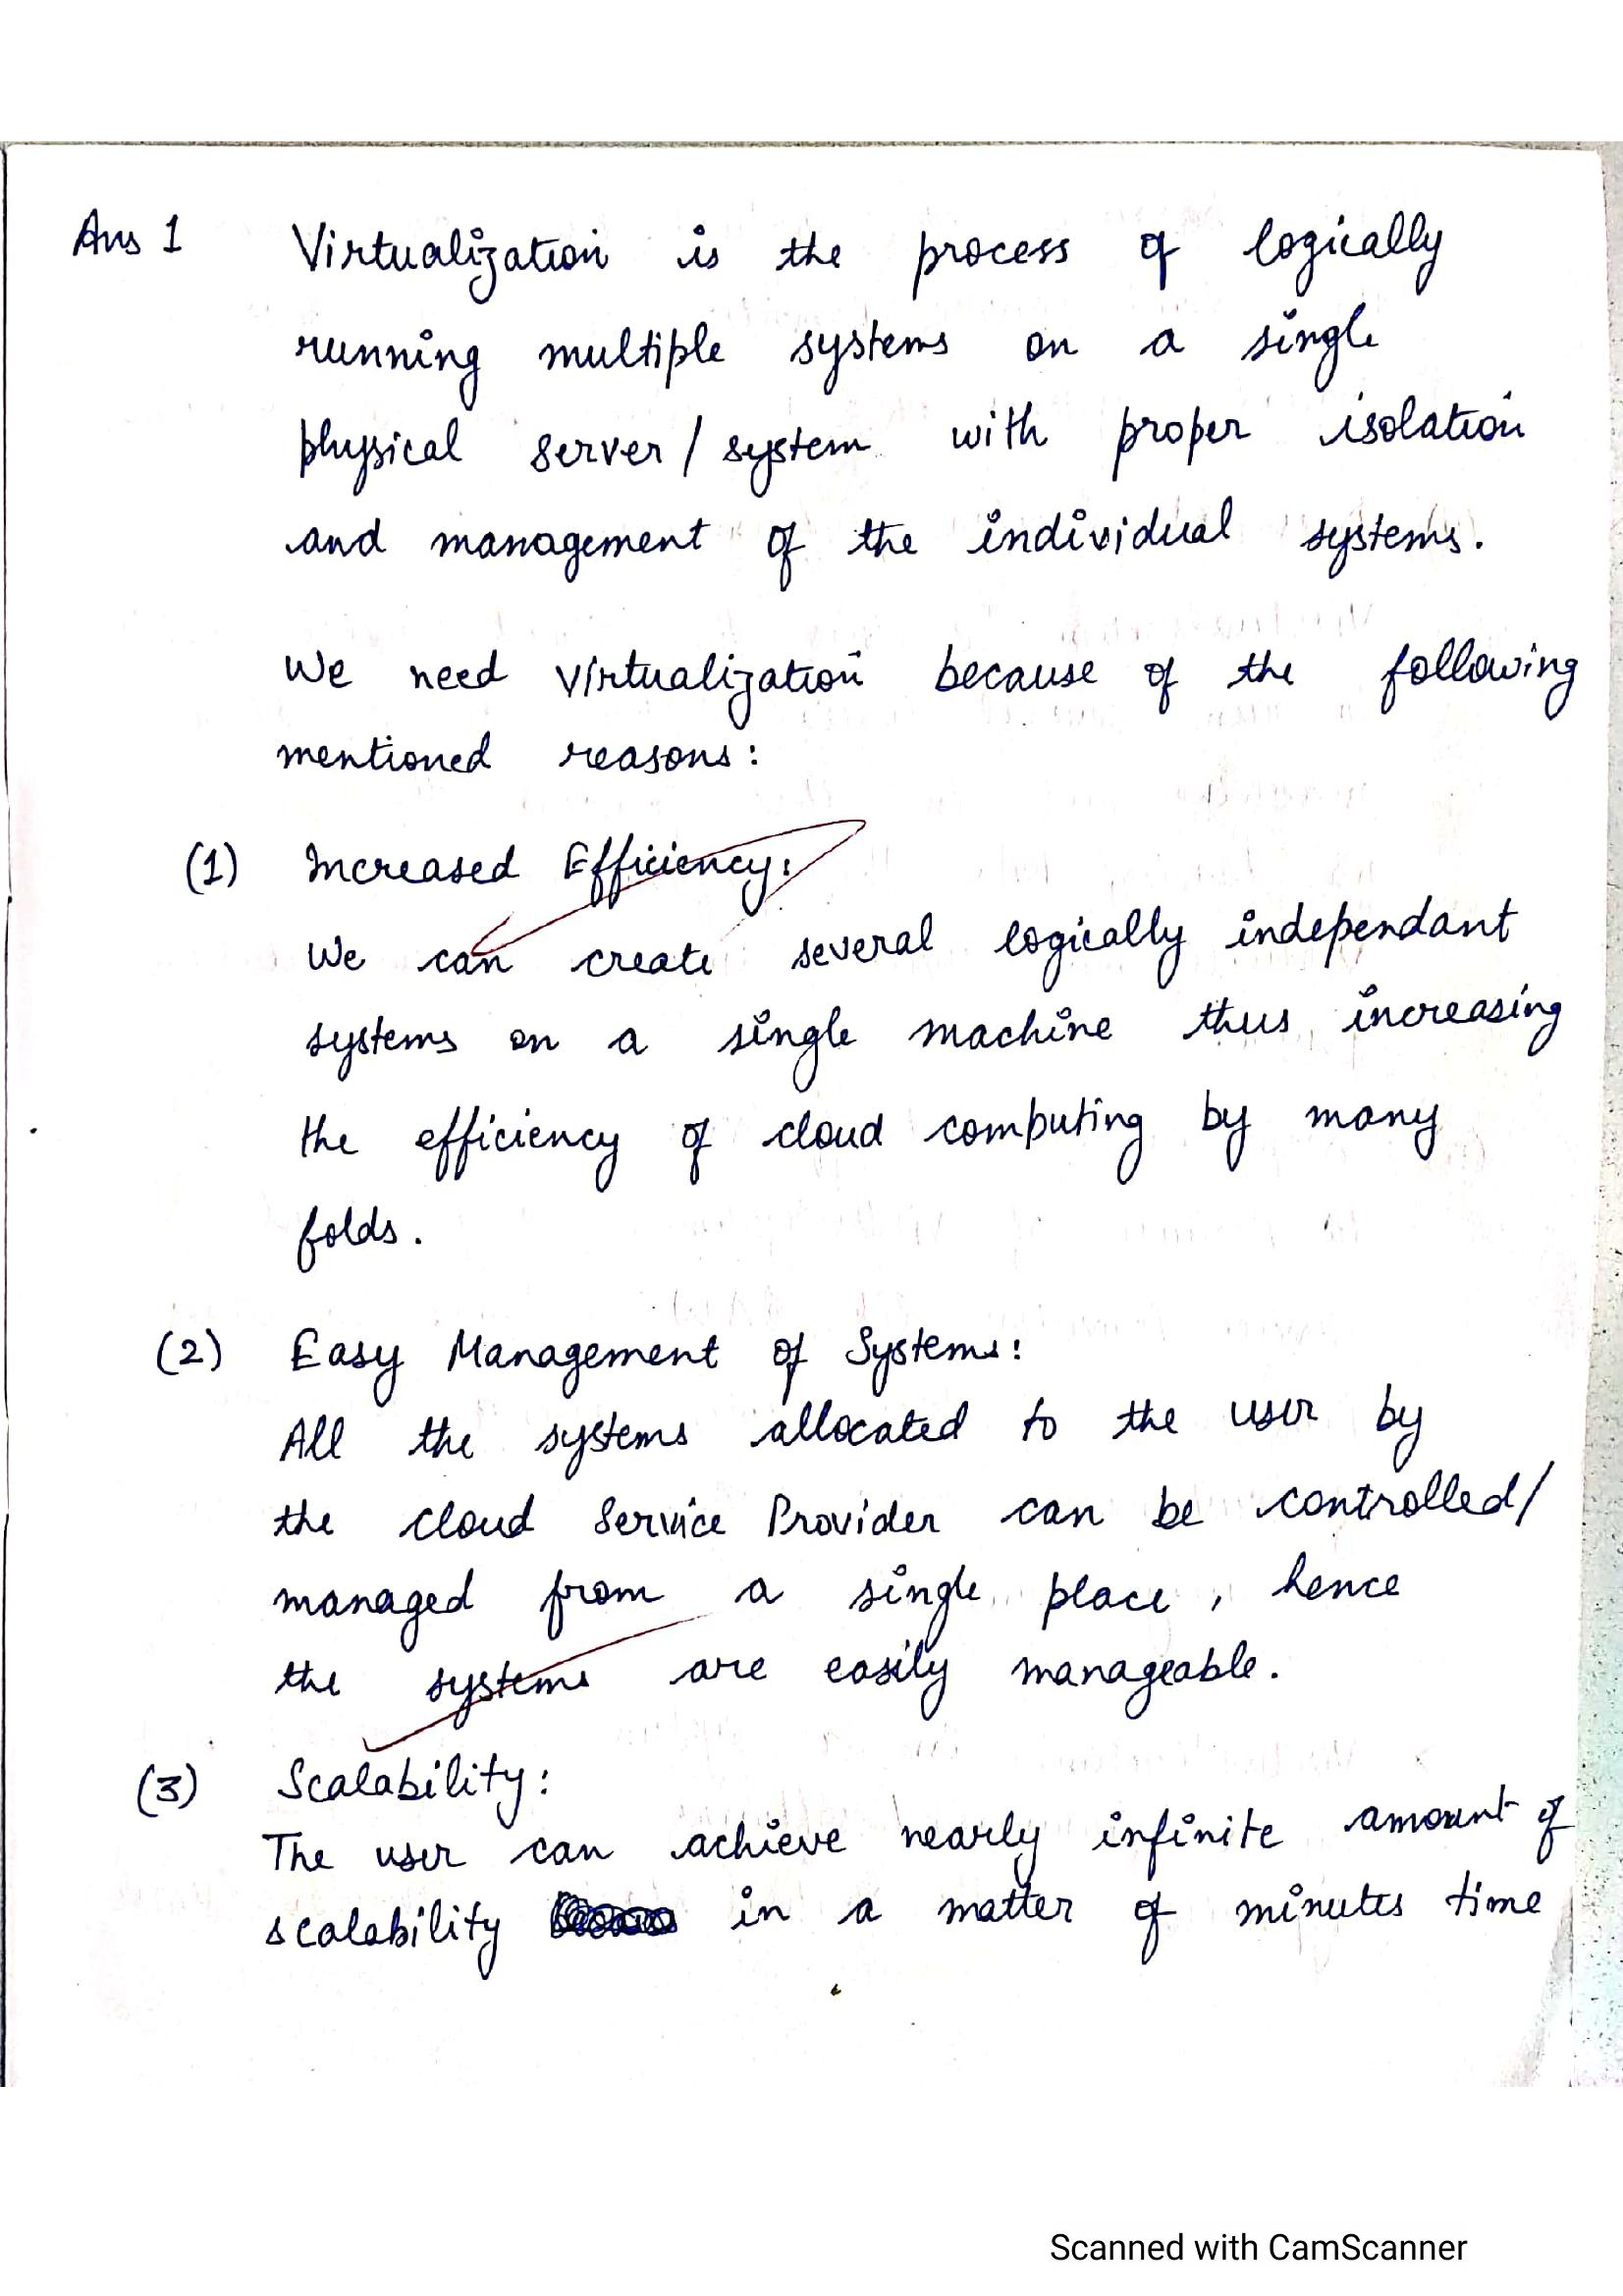 Ans 1 Virtualization is the process of logically
running multiple systems on a single
physical server / system with proper isolation
and management of the individual systems.
We need virtualization because of the following
mentioned reasons:
(1) Increased Efficiency:
We can create several logically independant
systems on a single machine thus increasing
the efficiency of cloud computing by many
folds.
(2) Easy Management of Systems:
All the systems allocated to the user by
the cloud Service Provider can be controlled/
managed from a single place, hence
the systems are easily manageable.
(3) Scalability:
The user can achieve nearly infinite amount of
scalability in a matter of minutes time
Scanned with CamScanner